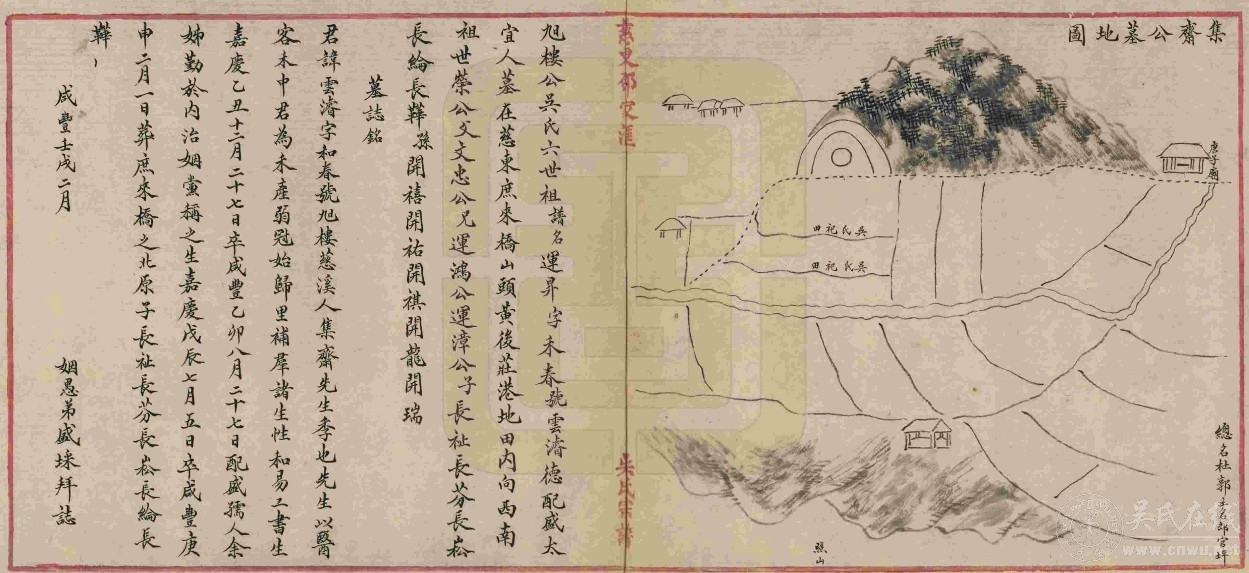 集齋公墓地圖
庚子廟
吳氏祀田
吳氏祀田
總名杜郭土名郎官坪
照山
慈東郭家滙
吳氏宗譜
旭樓公吳氏六世祖譜名運昇字未春號雲濤德配盛太
宜人墓在慈東庶來橋山頭黃後莊港地田內向西南
祖世榮公父文忠公兄運鴻公運漳公子長祉長芬長崧
長綸長華孫開禧開祐開祺開龍開瑞
墓誌銘
君諱雲濤字和春號旭樓慈溪人集齋先生季也先生以醫
客未中君為未產弱冠始歸里補羣諸生性和易工書生
嘉慶乙丑十二月二十七日卒咸豐乙卯八月二十七日配盛孺人余
姊勤於內治姻黨稱之生嘉慶戊辰七月五日卒咸豐庚
申二月一日葬庶來橋之北原子長祉長芬長崧長綸長
華
咸豐壬戌二月
姻愚弟盛埰拜誌
吳氏在線
www.cnwu.net